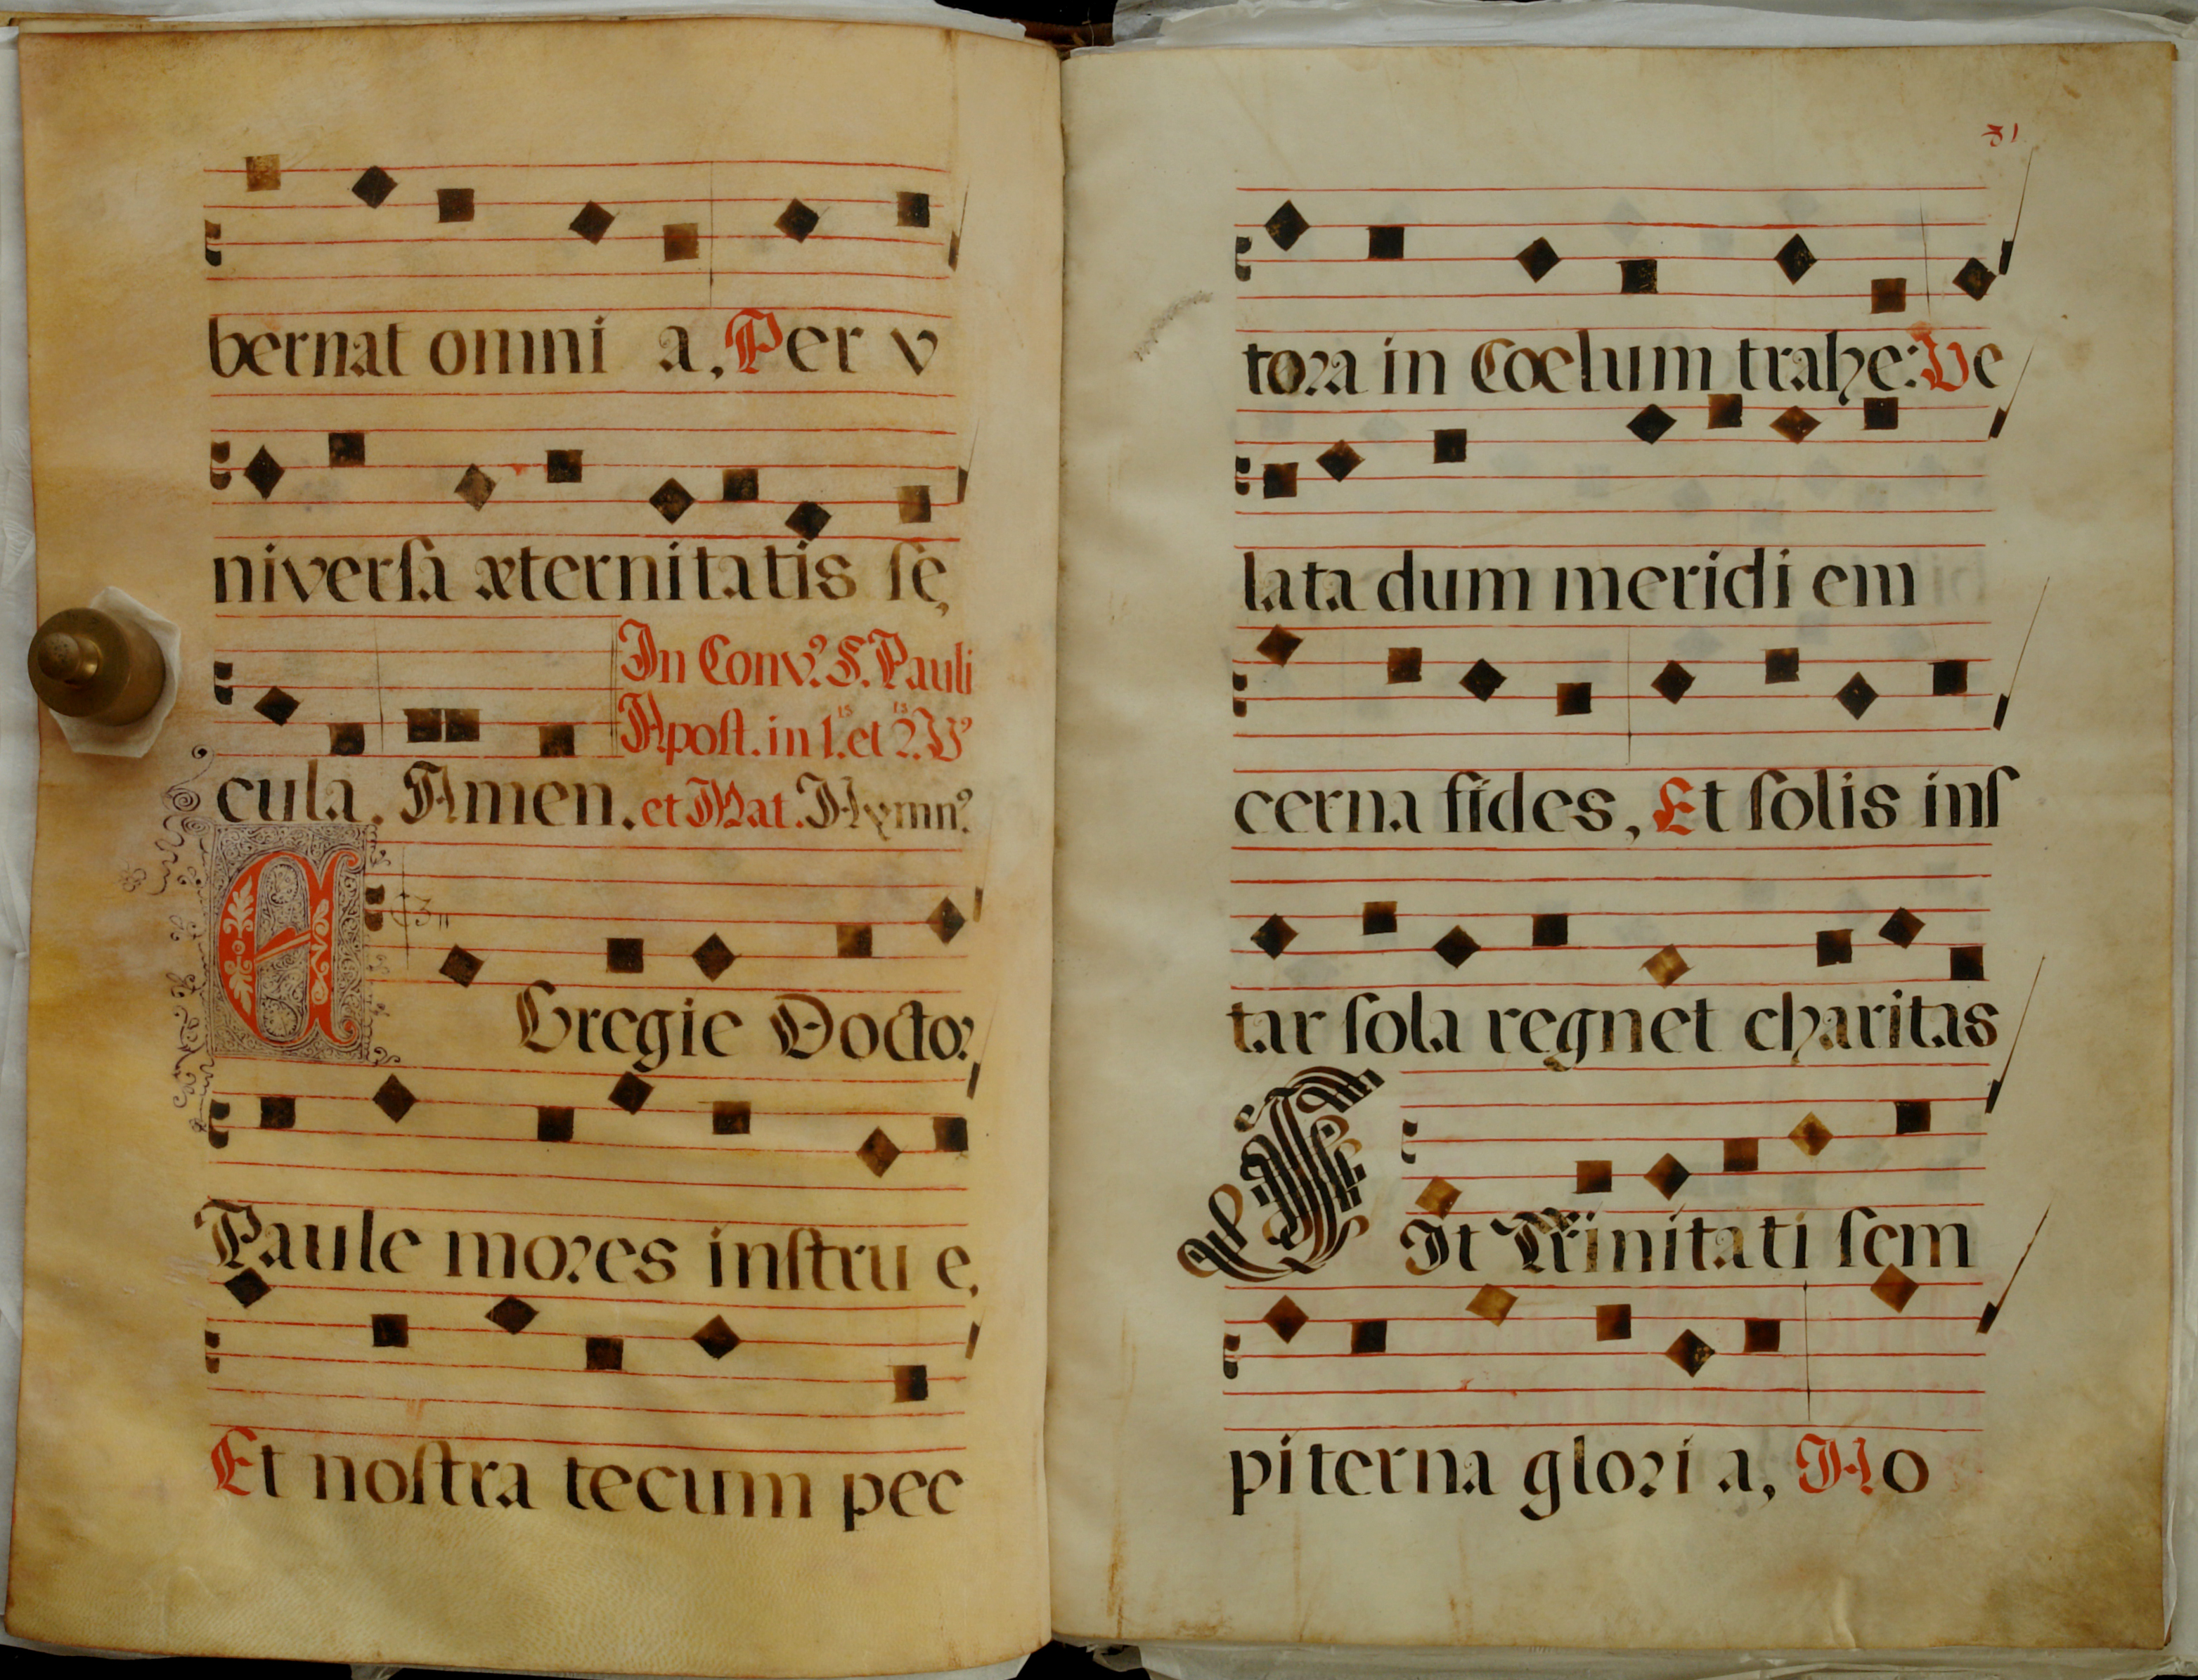 bernat omni a, Per v
niverſa æternitatis ſę
In Conv.º S. Pauli
Apoſt. in 1.ⁱˢ et 2.ⁱˢ Vº
cula. Amen. et Mat. Hymnº
EGregie Doctor
Paule mores inſtru e,
Et noſtra tecum pec
31
tora in Coelum trahe: Ve
lata dum meridi em
cerna fides, Et ſolis inſ
tar ſola regnet charitas
SIt Trinitati ſem
piterna glori a, Ho